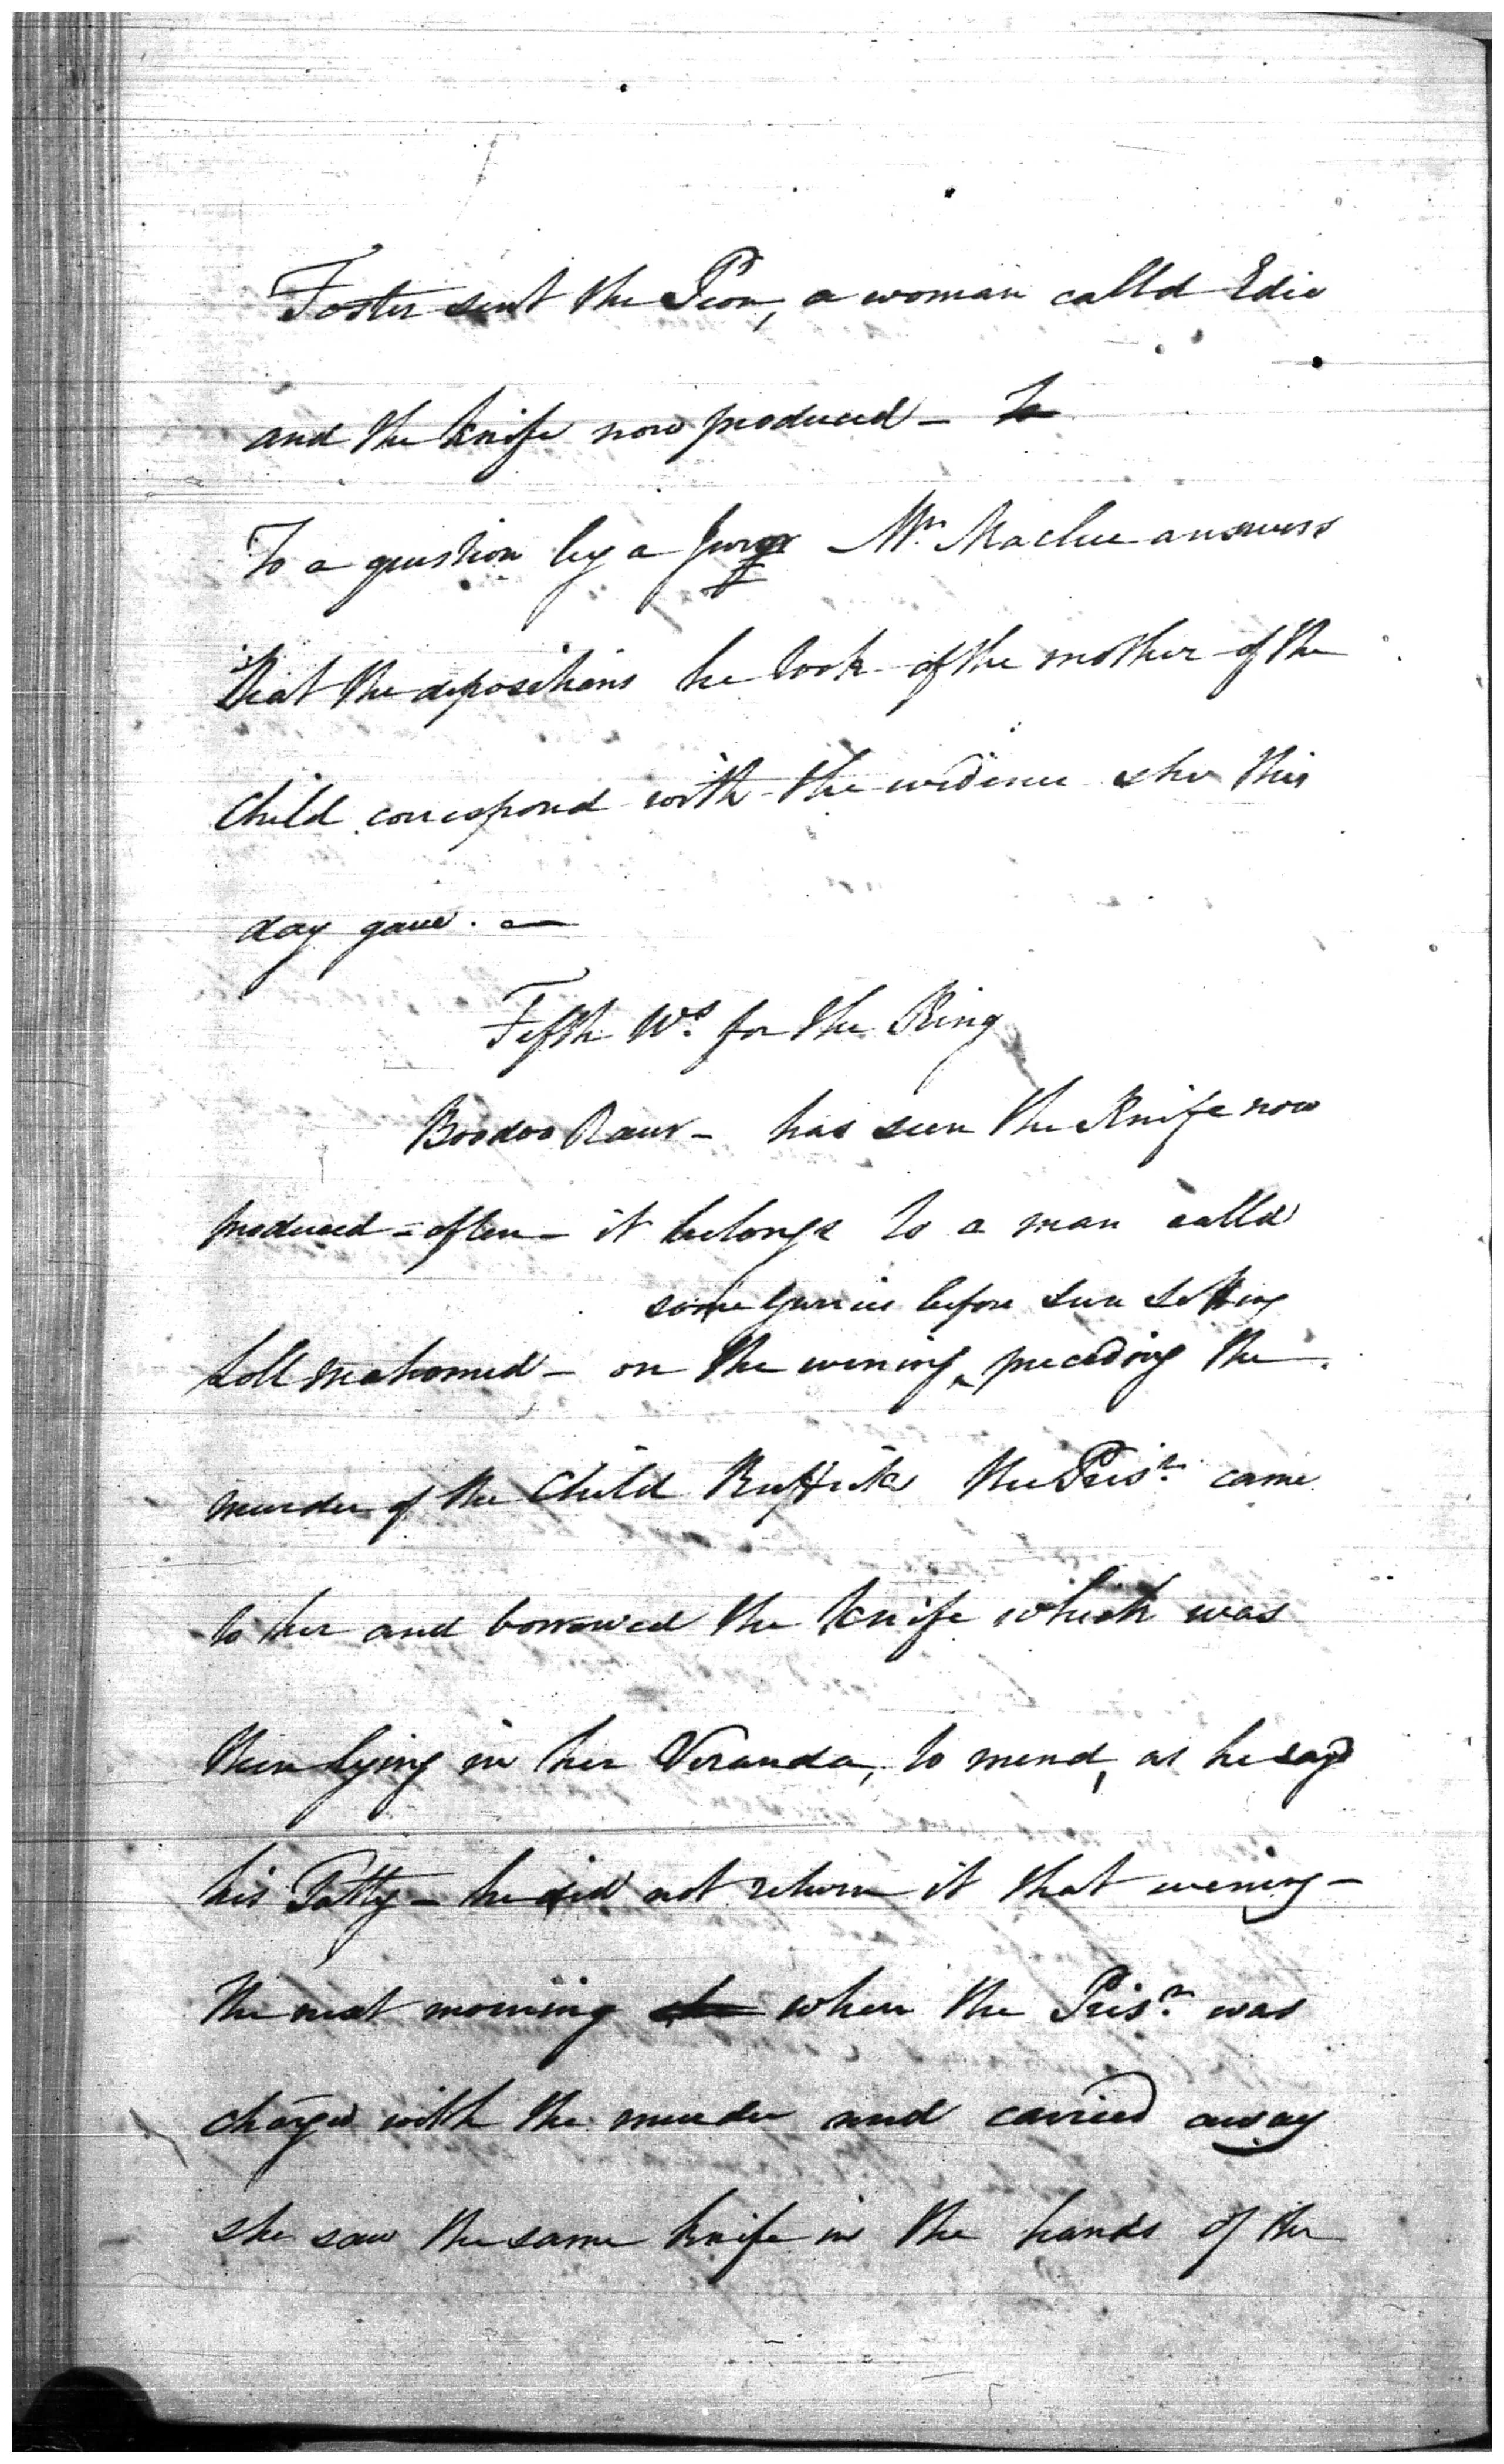 Foster sent the Peon, a woman calld Edio
and the knife now produced – To
To a question by a Juror Mr. Maclue answers
that the depositions he took of the mother of the
Child correspond with the evidence she this
day gave. —
Fifth Ws. for the King
Boodoo Raur – has seen the Knife now
produced – often – it belongs to a man calld
some Gurries before sun setting
Loll Mahomed – on the evening ^ preceding the
murder of the Child the Prisr. came
to her and borrowed the knife which was
then lying in her Veranda, to mend, as he sayd
his Tatty – he did not return it that evening –
the next morning when the Prisr. was
charged with the murder and carried away
she saw the same knife in the hands of the